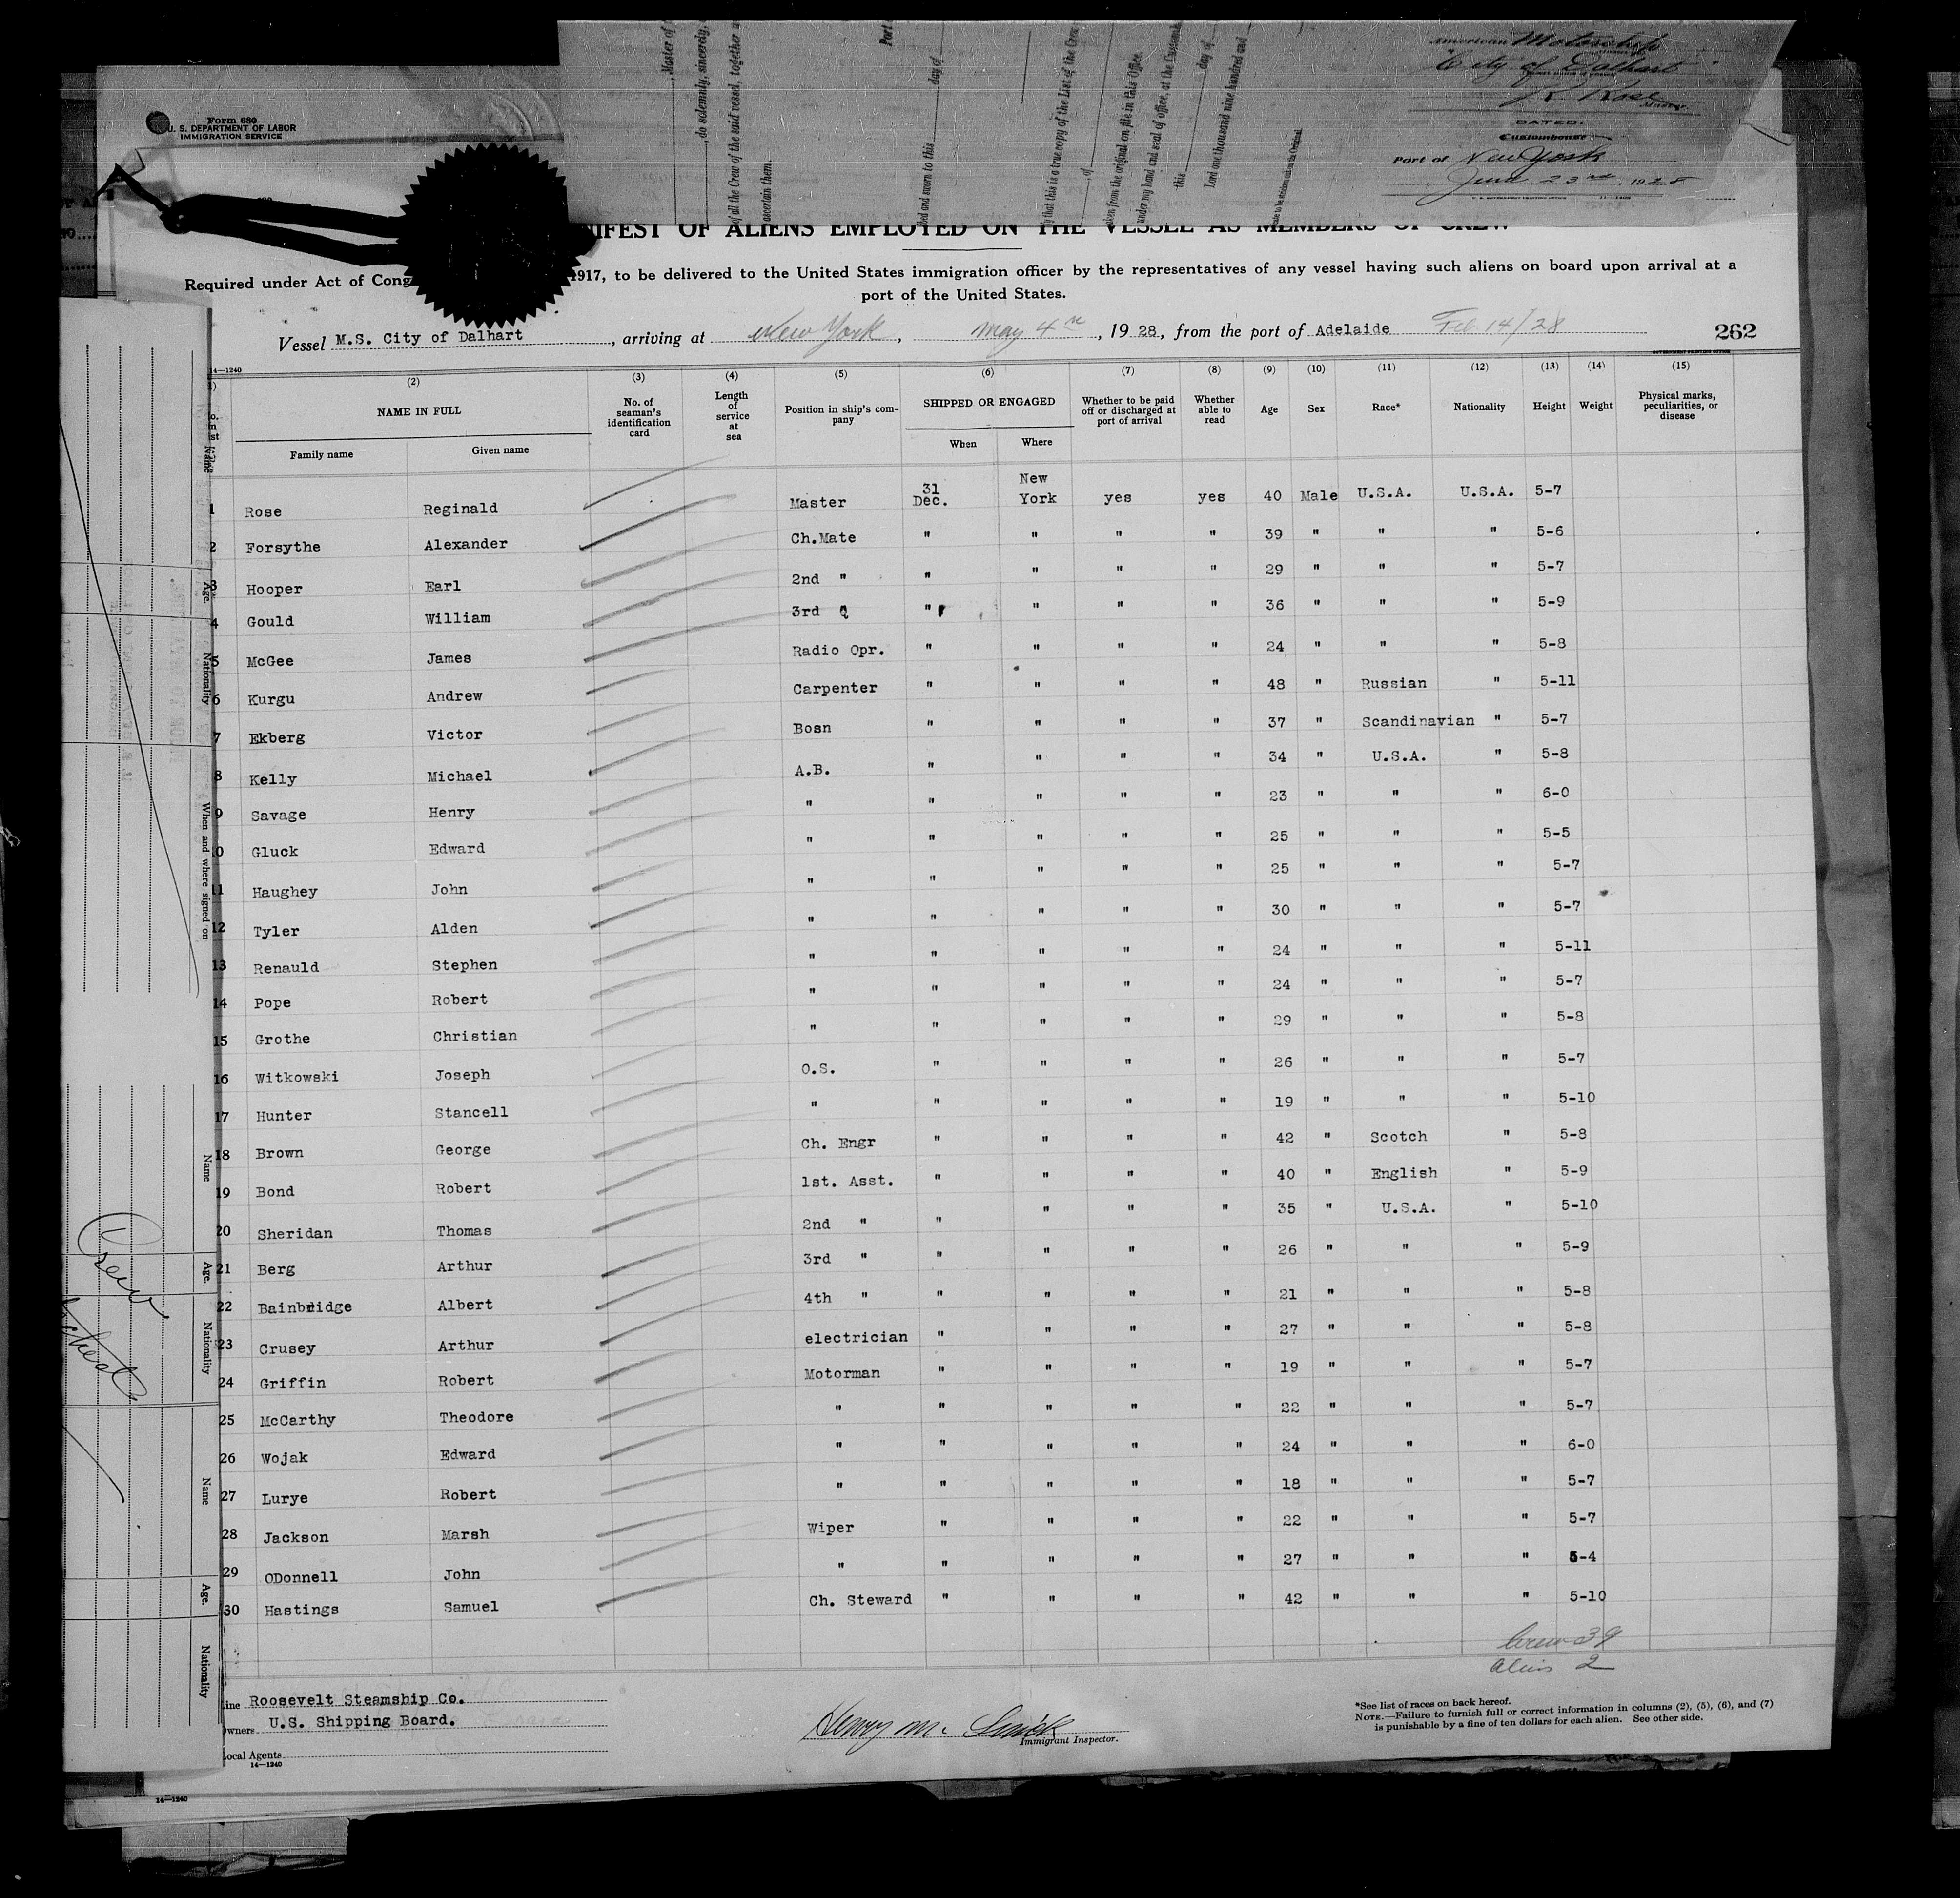 American Motorship
"City of Dalhart"
R. Rose
Master.
DATED:
Customhouse
Port of New York
June 23rd, 1928
Port
, Master of
, do solemnly, sincerely,
of all the Crew of the said vessel, together
ascertain them.
and sworn to this day of
that this is a true copy of the List of the Crew
of
taken from the original on file in this Office.
under my hand and seal of office, at the Customh
this day of
Lord one thousand nine hundred and
Form 680
U. S. DEPARTMENT OF LABOR
IMMIGRATION SERVICE
IFEST OF ALIENS EMPLOYED ON THE VESSEL AS MEMBERS OF CREW
Required under Act of Cong 1917, to be delivered to the United States immigration officer by the representatives of any vessel having such aliens on board upon arrival at a
port of the United States.
Vessel M.S. City of Dalhart, arriving at New York, May 4th, 1928, from the port of Adelaide Feb 14/28 262
14—1240
(2) (3) (4) (5) (6) (7) (8) (9) (10) (11) (12) (13) (14) (15)
NAME IN FULL No. of seaman's identification card Length of service at sea Position in ship's company SHIPPED OR ENGAGED Whether to be paid off or discharged at port of arrival Whether able to read Age Sex Race* Nationality Height Weight Physical marks, peculiarities, or disease
Family name Given name When Where
1 Rose Reginald Master 31 Dec. New York yes yes 40 Male U.S.A. U.S.A. 5-7
2 Forsythe Alexander Ch.Mate " " " " 39 " " " 5-6
3 Hooper Earl 2nd " " " " " 29 " " " 5-7
4 Gould William 3rd " " " " 36 " " " 5-9
5 McGee James Radio Opr. " " " " 24 " " " 5-8
6 Kurgu Andrew Carpenter " " " " 48 " Russian " 5-11
7 Ekberg Victor Bosn " " " " 37 " Scandinavian " 5-7
8 Kelly Michael A.B. " " " " 34 " U.S.A. " 5-8
9 Savage Henry " " " " " 23 " " " 6-0
10 Gluck Edward " " " " " 25 " " " 5-5
11 Haughey John " " " " " 25 " " " 5-7
12 Tyler Alden " " " " " 30 " " " 5-7
13 Renauld Stephen " " " " " 24 " " " 5-11
14 Pope Robert " " " " " 24 " " " 5-7
15 Grothe Christian " " " " " 29 " " " 5-8
16 Witkowski Joseph O.S. " " " " 26 " " " 5-7
17 Hunter Stancell " " " " " 19 " " " 5-10
18 Brown George Ch. Engr " " " " 42 " Scotch " 5-8
19 Bond Robert 1st. Asst. " " " " 40 " English " 5-9
20 Sheridan Thomas 2nd " " " " " 35 " U.S.A. " 5-10
21 Berg Arthur 3rd " " " " " 26 " " " 5-9
22 Bainbridge Albert 4th " " " " " 21 " " " 5-8
23 Crusey Arthur electrician " " " " 27 " " " 5-8
24 Griffin Robert Motorman " " " " 19 " " " 5-7
25 McCarthy Theodore " " " " " 22 " " " 5-7
26 Wojak Edward " " " " " 24 " " " 6-0
27 Lurye Robert " " " " " 18 " " " 5-7
28 Jackson Marsh Wiper " " " " 22 " " " 5-7
29 ODonnell John " " " " " 27 " " " 5-4
30 Hastings Samuel Ch. Steward " " " " 42 " " " 5-10
Crew 39
Aliens 2
Line Roosevelt Steamship Co.
Owners U.S. Shipping Board.
Local Agents
14—1240
Henry M.
Immigrant Inspector.
*See list of races on back hereof.
NOTE.—Failure to furnish full or correct information in columns (2), (5), (6), and (7)
is punishable by a fine of ten dollars for each alien. See other side.
14—1240
Name
Age.
Nationality
When and where signed on
Name
Age.
Nationality
Name
Age.
Nationality
Crew